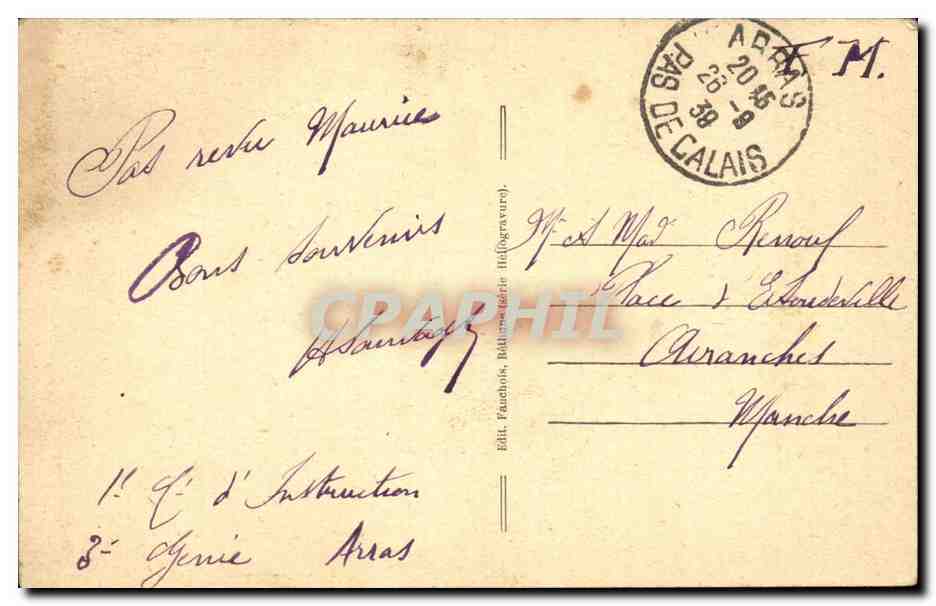 Pas revu Maurice
Bons souvenirs
1e Cie d'Instruction
3e Génie Arras
Edit. Fauchois, Béthune (série Héliogravure).
ARRAS
20 45
26 - 9
38
PAS DE CALAIS
F. M.
Mr & Mad Renouf
Place d'Estoudeville
Avranches
Manche
CPAPHIL